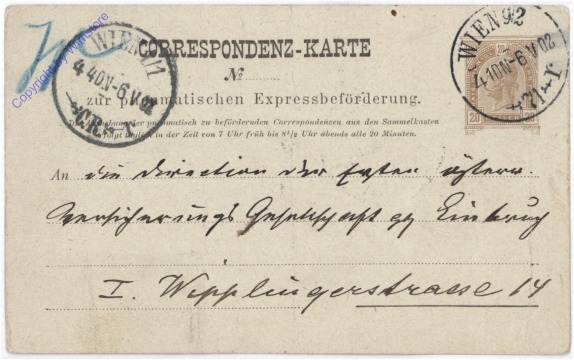 WIEN 1/1
4.40N-6.V.02
WIEN 92
4.10N-6.V.02
CORRESPONDENZ-KARTE
№
zur pneumatischen Expressbeförderung.
Die Aushebung der pneumatisch zu befördernden Correspondenzen aus den Sammelkasten
erfolgt täglich in der Zeit von 7 Uhr früh bis 8½ Uhr abends alle 20 Minuten.
20 20
An die Direction der Ersten österr.
Versicherungs Gesellschaft gg Einbruch
I. Wipplingerstrasse 14
Copyright by